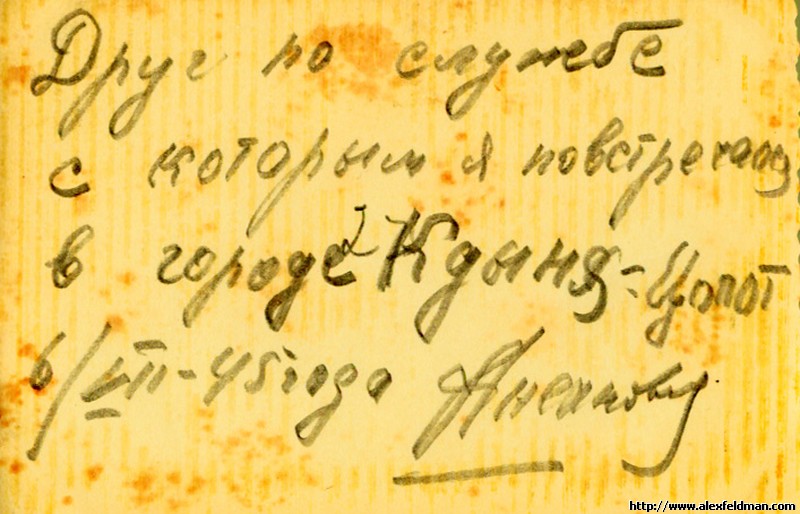 Друг по службе
с которым я повстречался
в городе Кдыня-Цопот
6/VII-45 года
http://www.alexfeldman.com